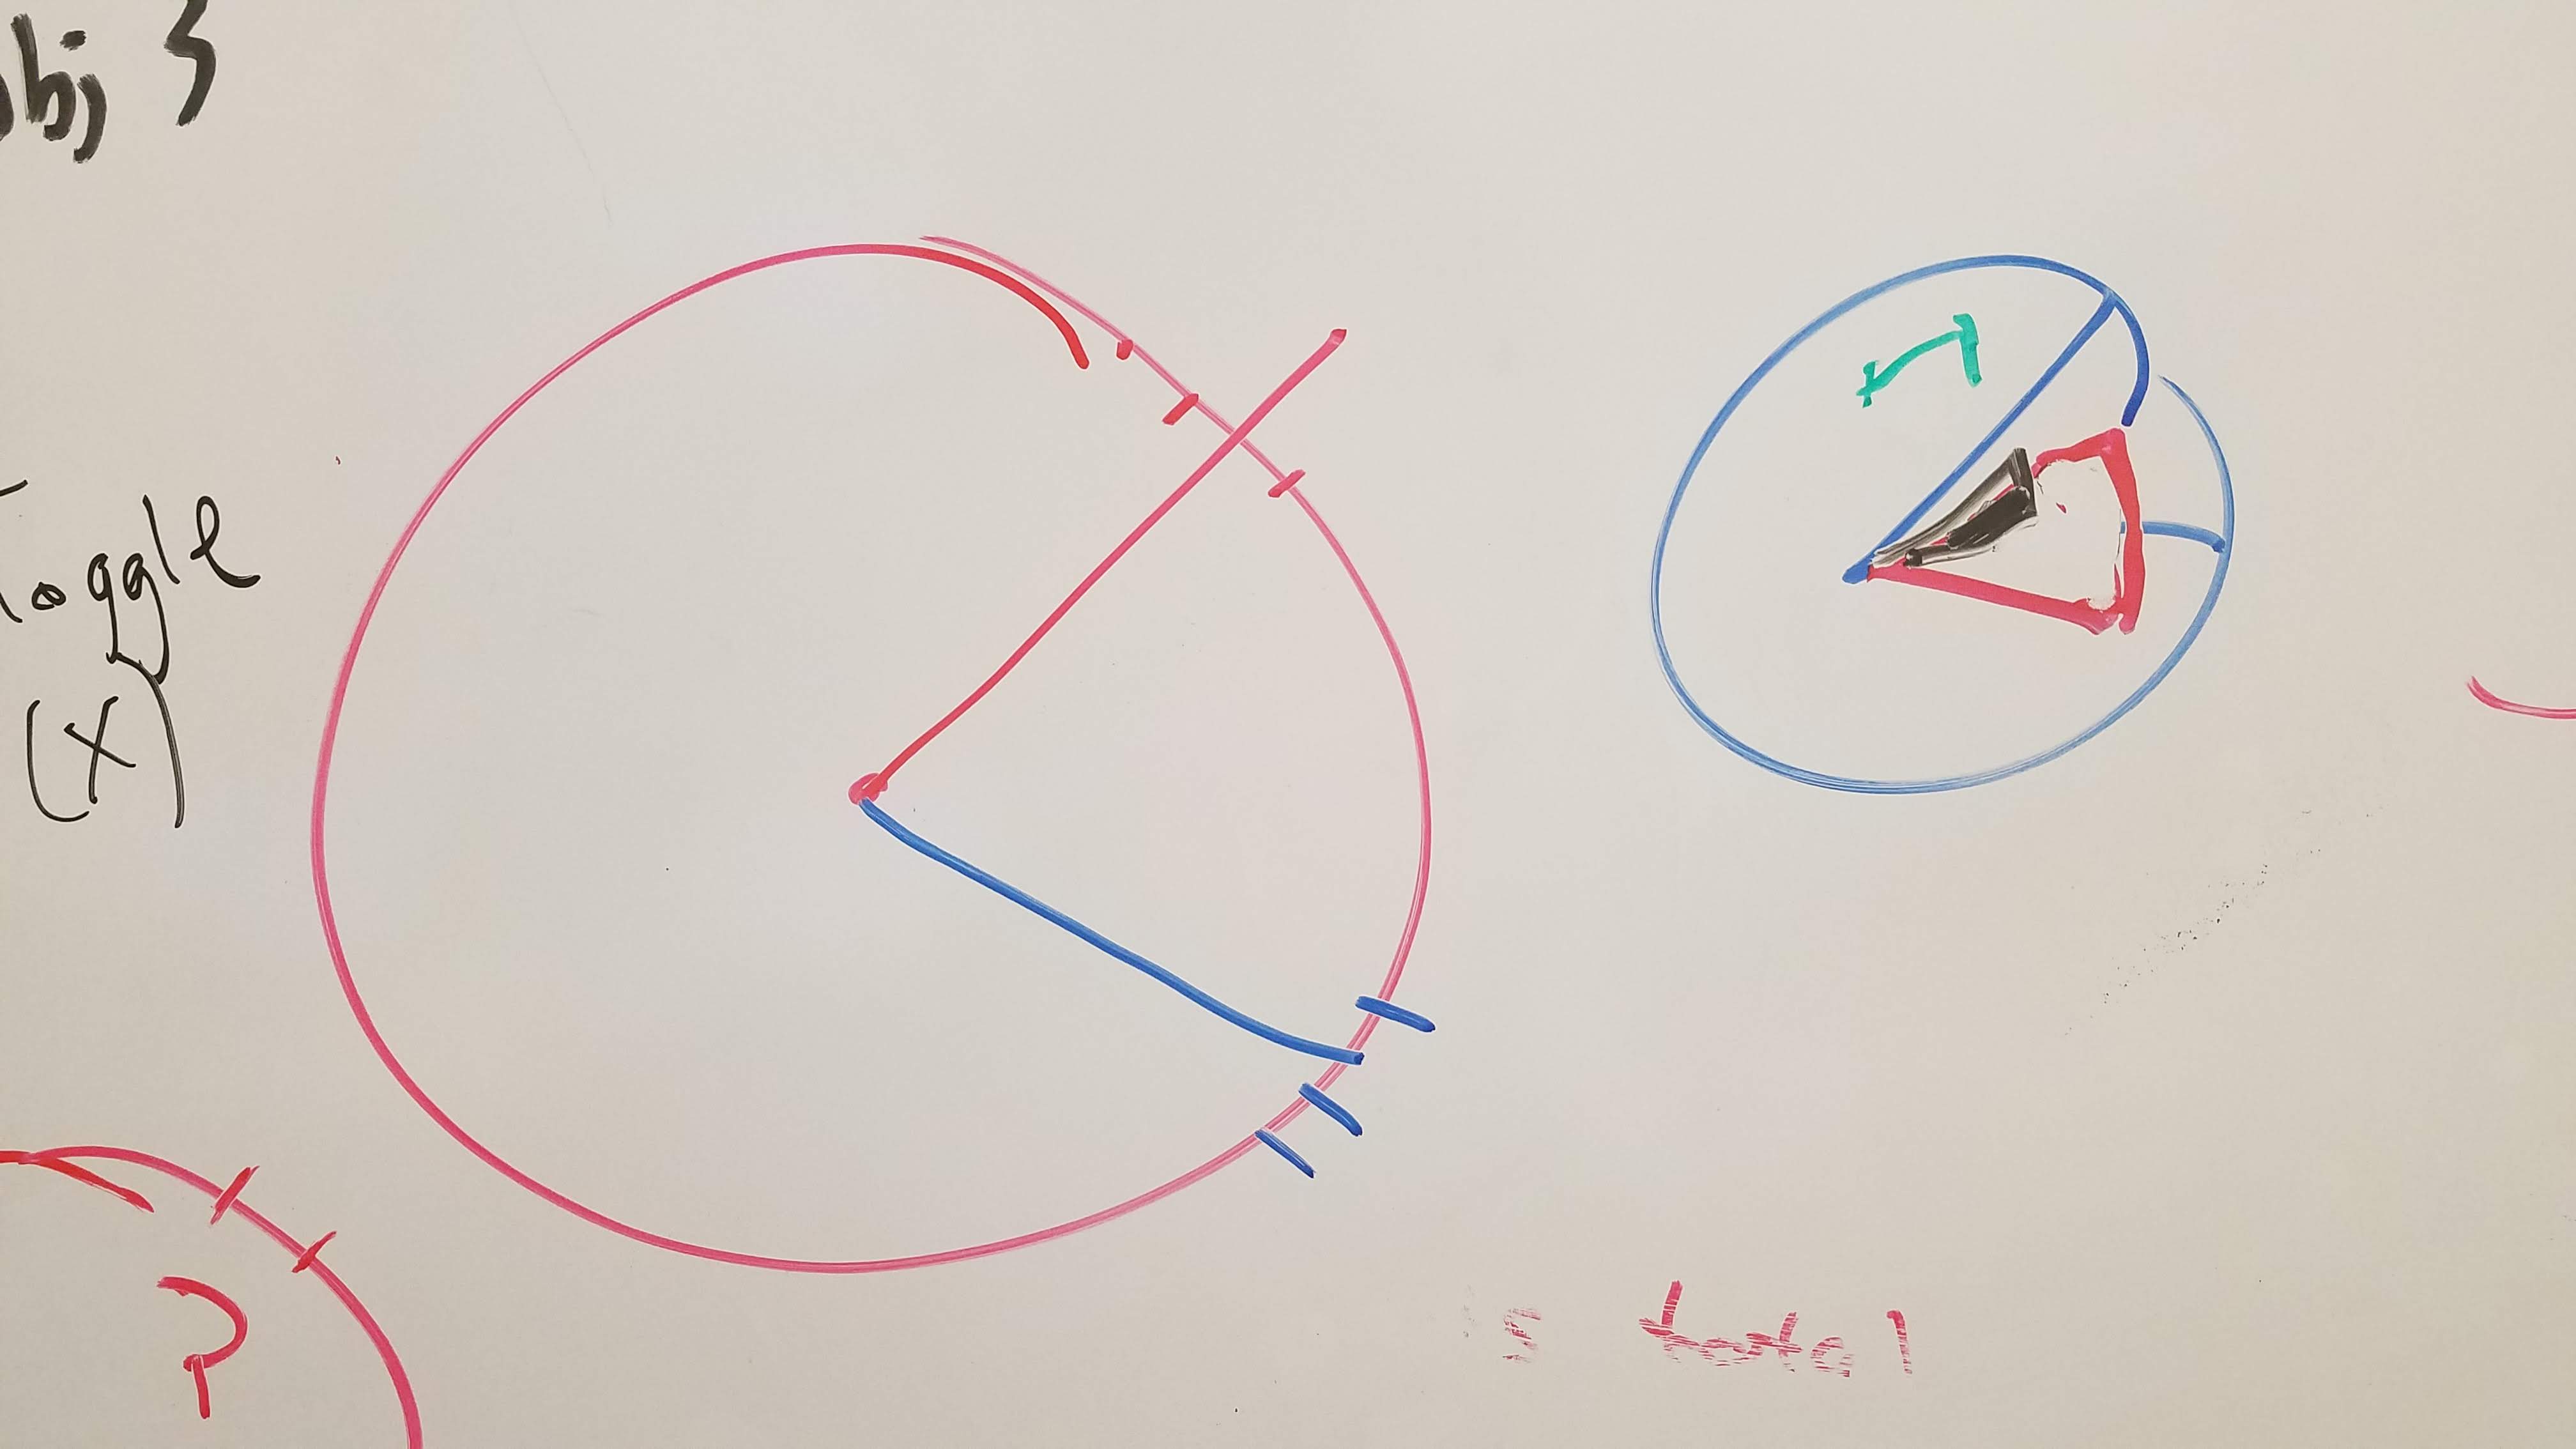 obj 3
Toggle
(x)
?
s total